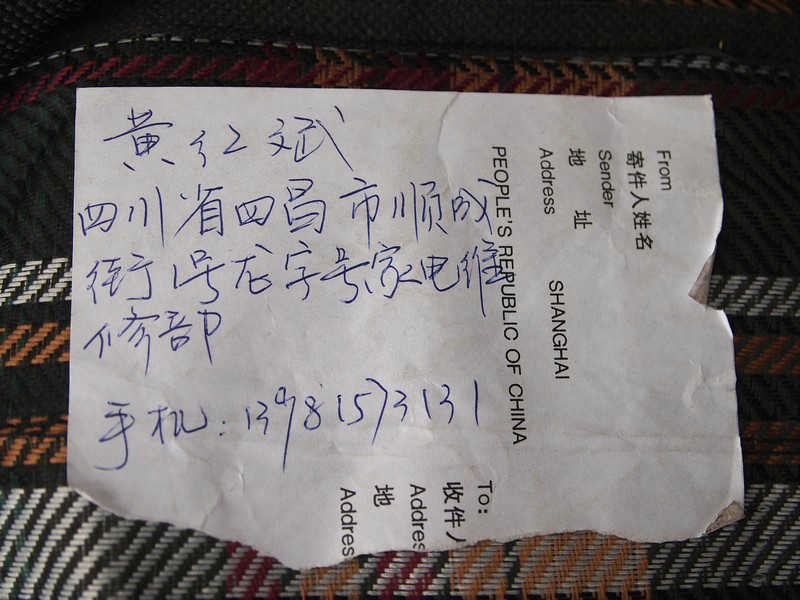 黄红斌
四川省西昌市顺城
街1号龙字号家电维
修部
手机：13981573131
From
寄件人姓名
Sender
地 址
Address
SHANGHAI
PEOPLE'S REPUBLIC OF CHINA
To:
收件人
Addres
地
Addres